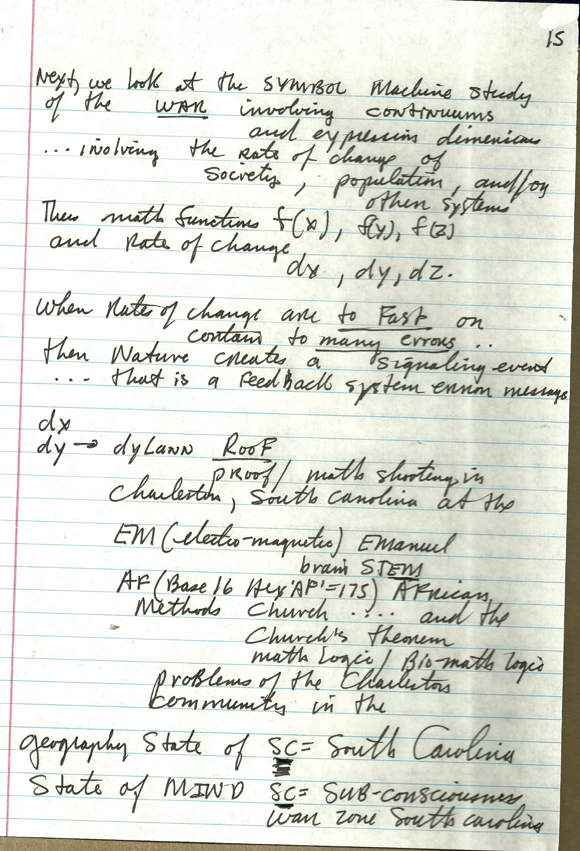 15
Next, we look at the SYMBOL Machine study
of the WAR involving continuums
and expression dimensions
... involving the Rate of change of
Society, population, and/or
other systems
Thus math functions f(x), f(y), f(z)
and Rate of change
dx, dy, dz.
When Rates of change are to Fast or
contain to many errors ..
then Nature creates a signaling event
.... that is a Feedback system error message
dx
dy → dyLANN ROOF
PROOF / math shooting in
Charleston, South Carolina at the
EM (electro-magnetic) EMANUEL
brain STEM
AF (Base 16 Hex 'AF' = 175) AFRICAN
Methods Church .... and the
Church's theorem
math logic / Bio-math logic
problems of the Charleston
community in the
geography State of SC = South Carolina
State of MIND SC = SUB-consciousness
War zone South Carolina